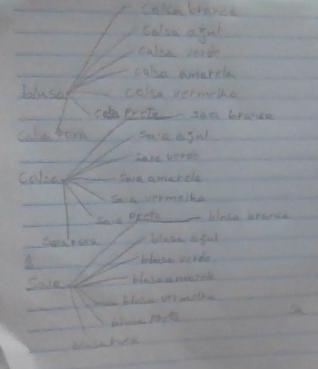 calsa branca
calsa azul
calsa verde
calsa amarela
blusa calsa vermelha
calsa Preta saia branca
calsa rosa saia azul
saia verde
Calsa saia amarela
saia vermelha
saia Preta blusa branca
saia rosa blusa azul
blusa verde
Saia blusa amarela
blusa vermelha
blusa Preta
blusa rosa